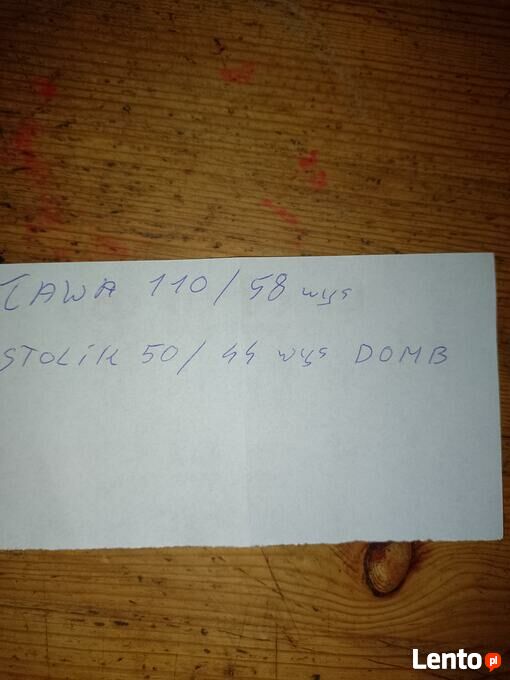 ŁAWA 110/58 wys
STOLIK 50/44 wys DOMB
Lento.pl